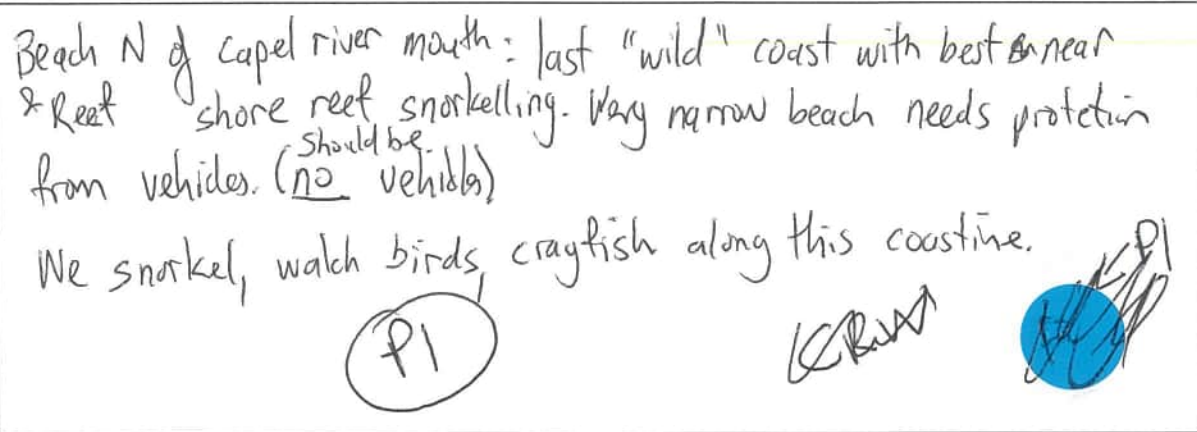 Beach N of Capel river mouth: last "wild" coast with best near
& Reef shore reef snorkelling. Very narrow beach needs protetion
should be
from vehicles. (no vehicles)
We snorkel, watch birds, crayfish along this coastine.
P1
P1